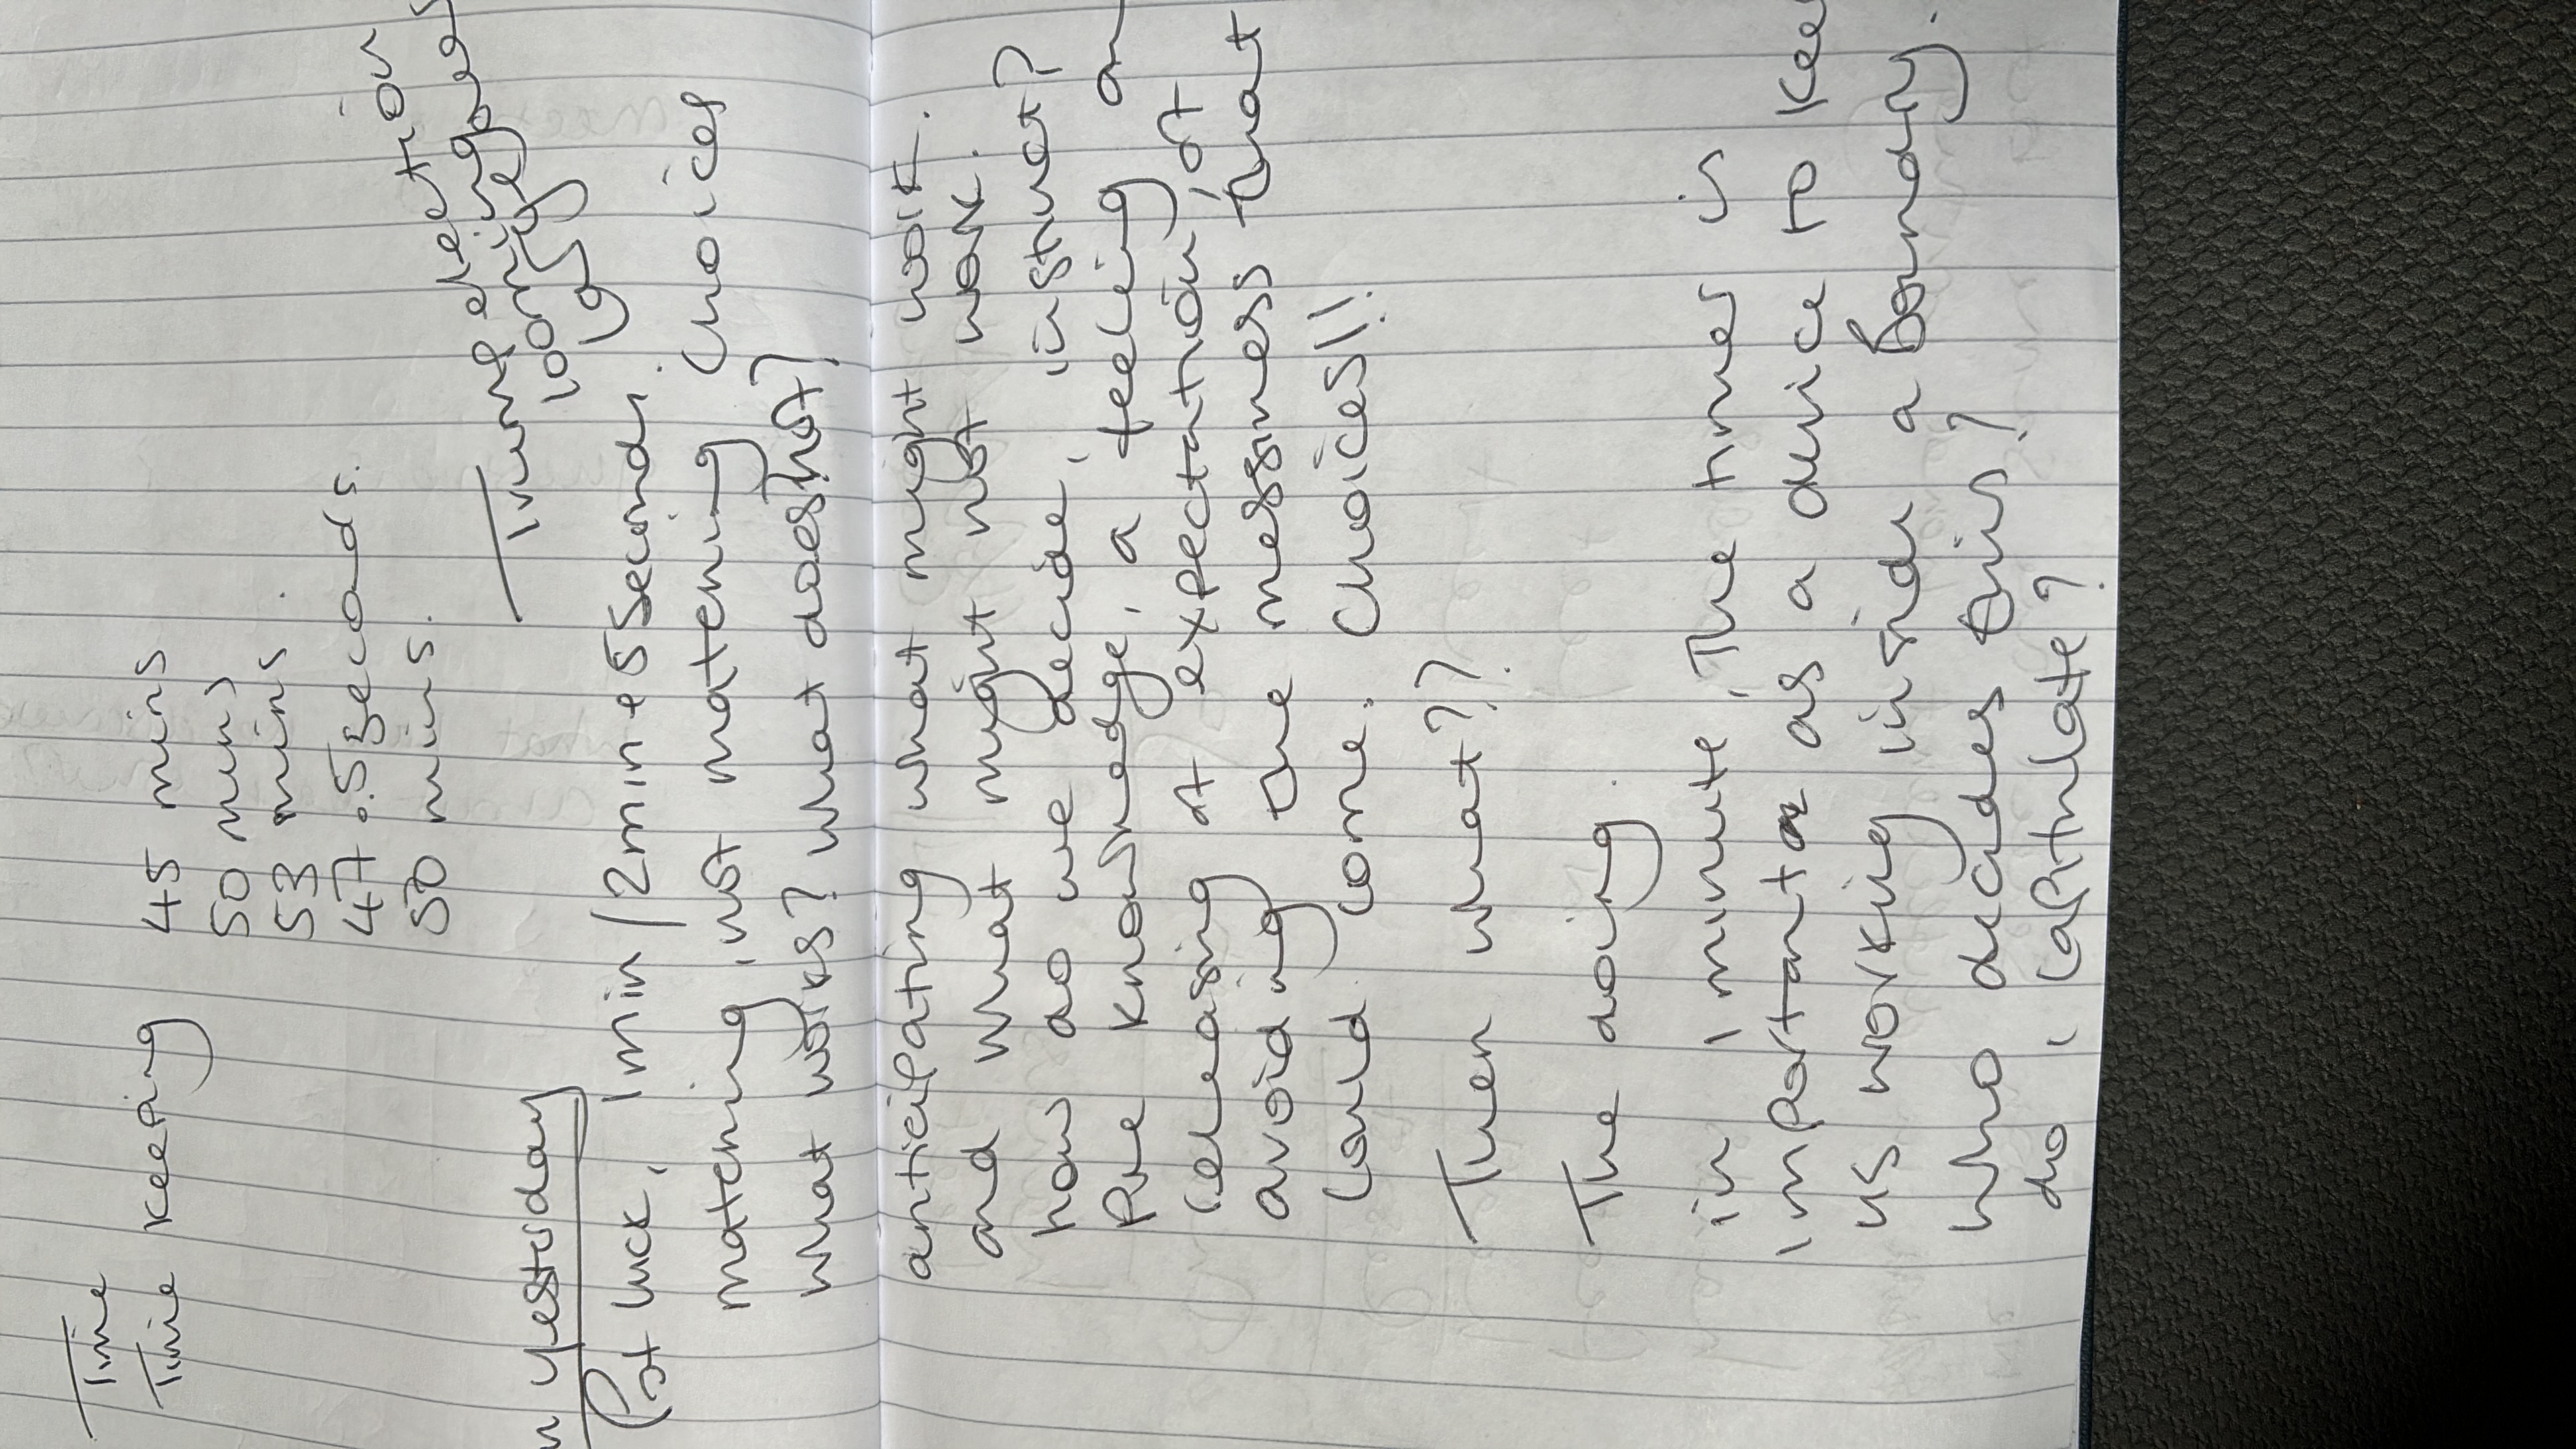 Time
Time keeping 45 mins
50 mins
53 mins
47.5 seconds.
50 mins.
yesterday
Time election
100m
Pot luck, 1 min / 2min + 5 seconds.
matching, not matching. Choices
what works? what does not?
anticipating what might work.
and what might not work.
how do we decide, instruct?
Pre knowledge, a feeling or
releasing of expectation, of
avoiding the messiness that
could come. Choices!!
Then what??
The doing.
in 1 minute, The timer is
important as a device to kee
us working inside a boundary.
who decides this?
do, capitulate?